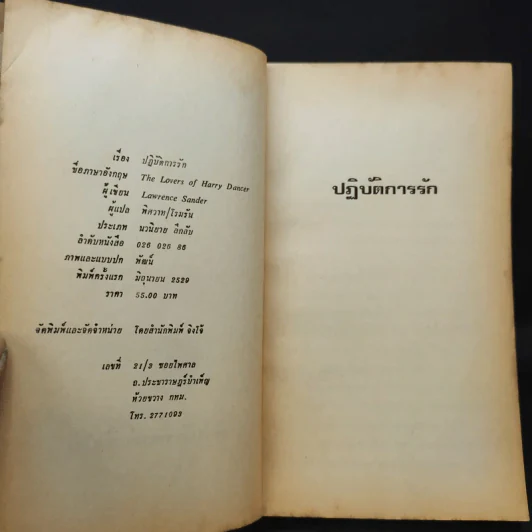 เรื่อง ปฏิบัติการรัก
ชื่อภาษาอังกฤษ The Lovers of Harry Dancer
ผู้เขียน Lawrence Sander
ผู้แปล พิศวาท/โรมรัน
ประเภท นวนิยาย ลึกลับ
ลำดับหนังสือ 026 025 86
ภาพและแบบปก พัฒน์
พิมพ์ครั้งแรก มิถุนายน 2529
ราคา 55.00 บาท
จัดพิมพ์และจัดจำหน่าย โดยสำนักพิมพ์ จิงโจ้
เลขที่ 21/3 ซอยไพศาล
ถ.ประชาราษฎร์บำเพ็ญ
ห้วยขวาง กทม.
โทร. 2771093
ปฏิบัติการรัก